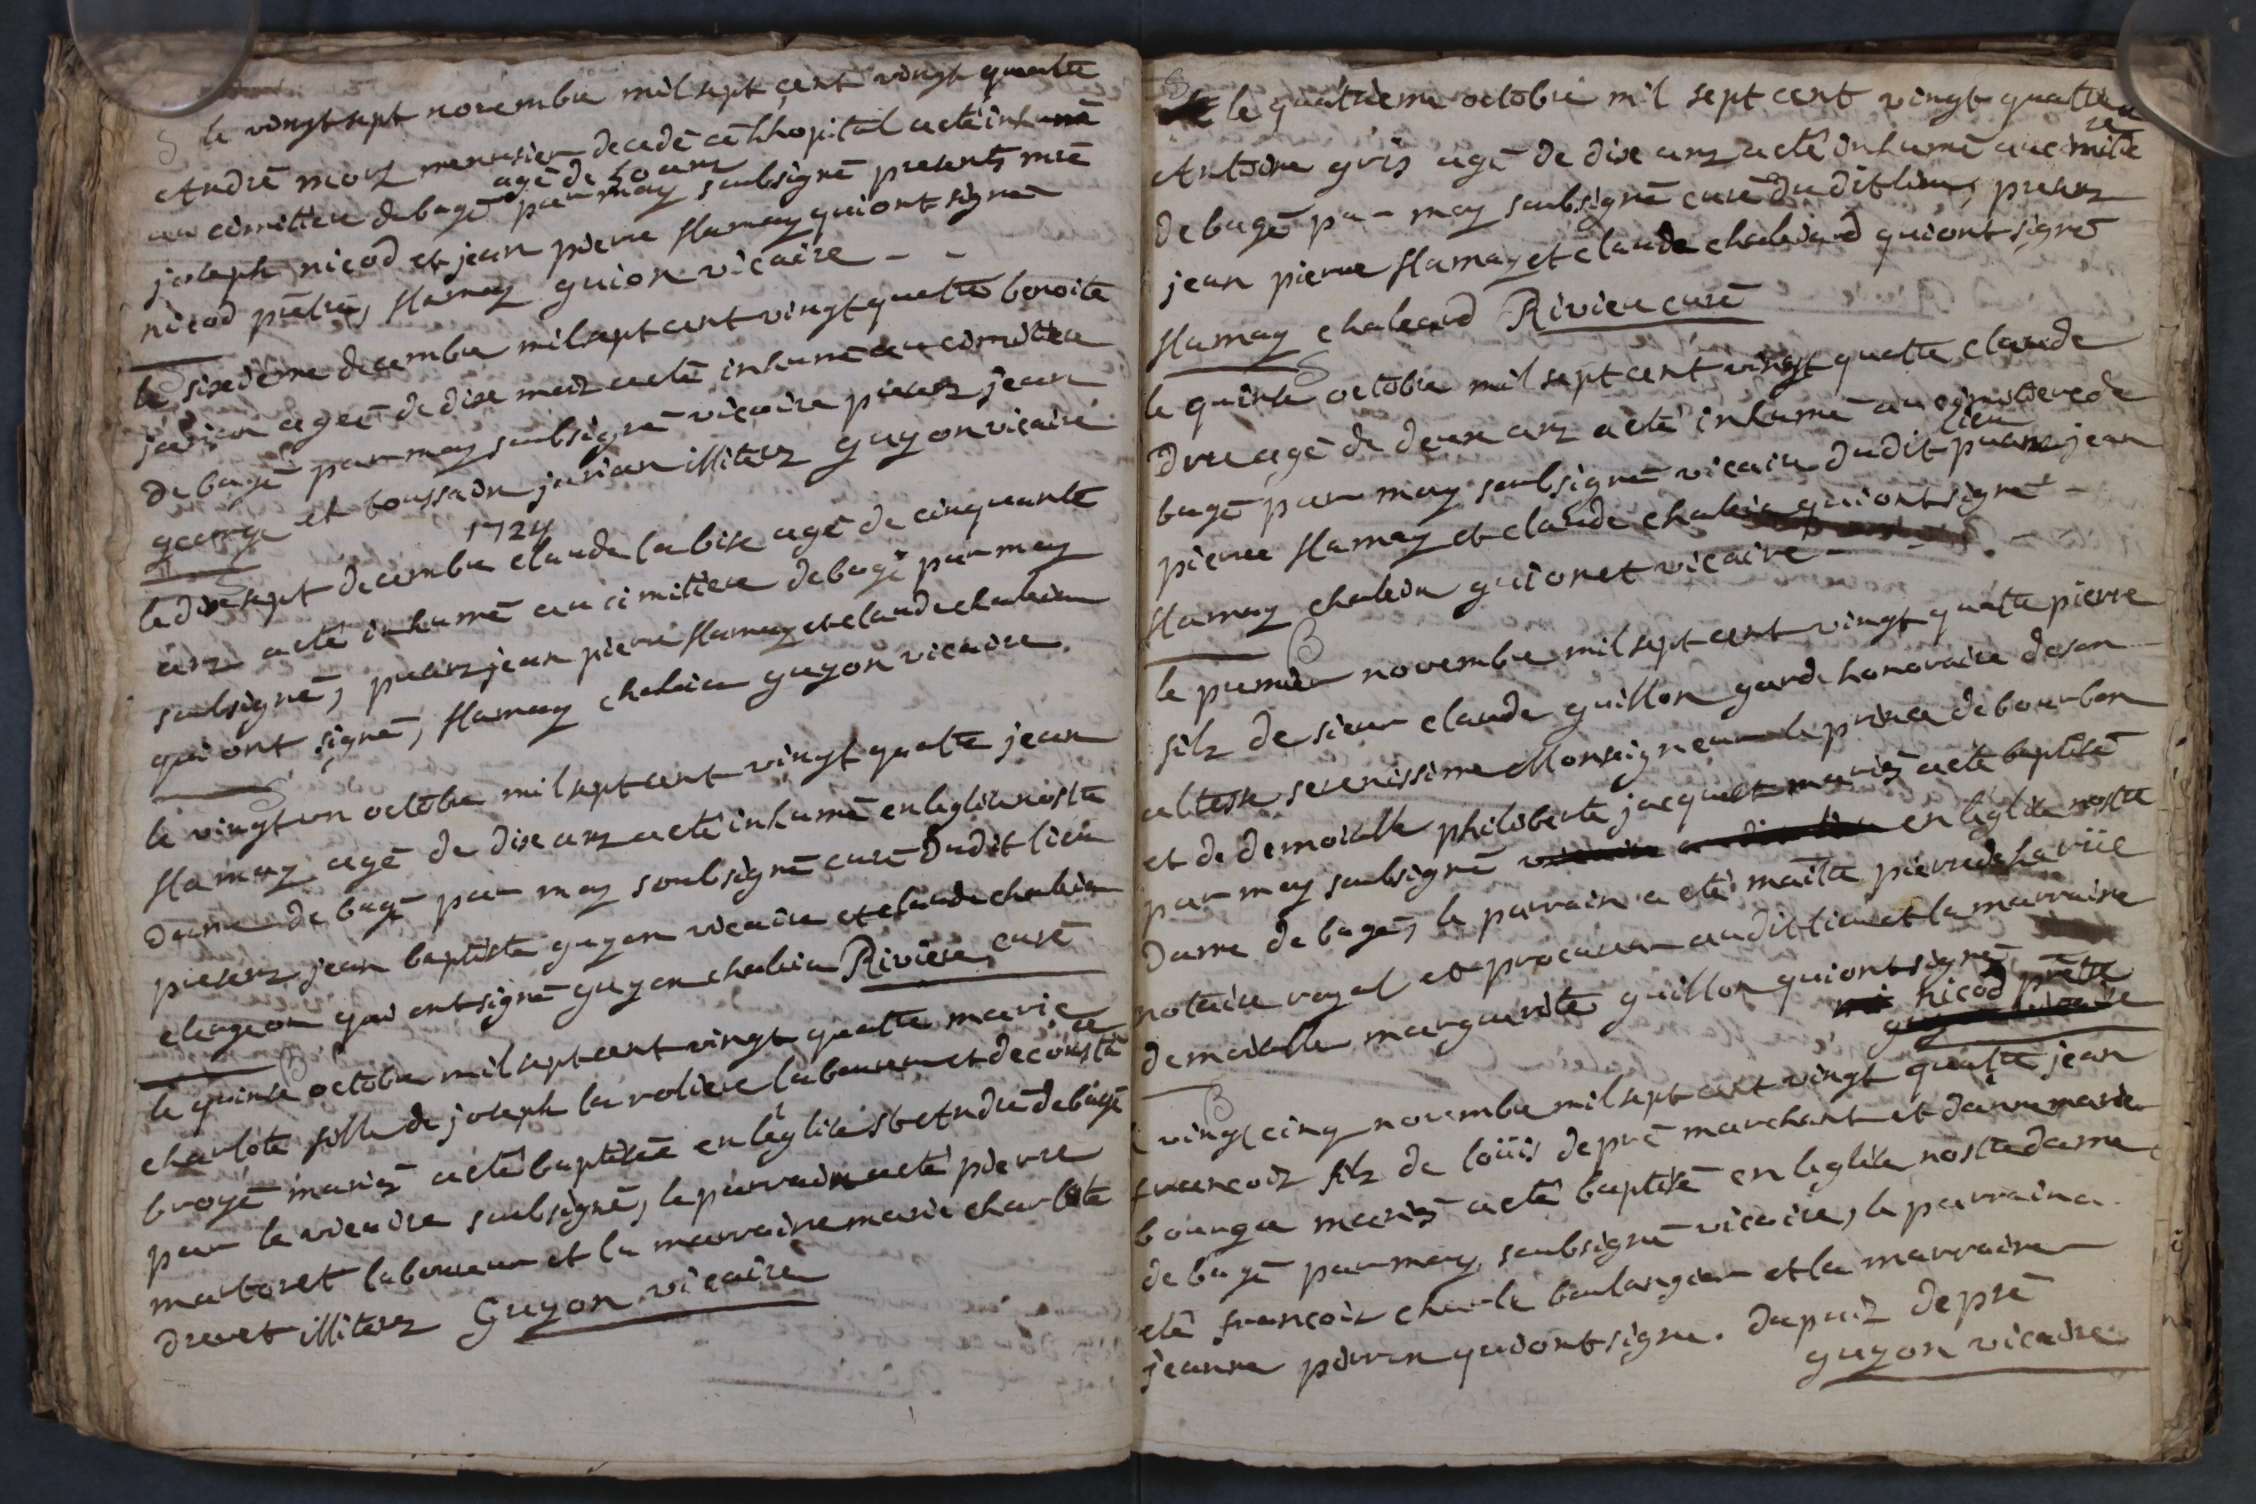 S le vingt sept novembre mil sept cent vingt quatre
André moey menusier decedé a lhopital a eté inhumé
agé de 50 ans
au cimitiere de bagé par moy soubsigné presents mre
joseph nicod et jean pierre flamay qui ont signe
nicod prêtre, flamay guion vicaire - -
S
le sixieme decembre mil sept cent vingt quatre benoite
jarian agee de dix mois a eté inhumé au cimitiere
de bagé par moy soubsigné vicaire presens jean
george et toussain jarian illiteres guyon vicaire
S
1724
le dix sept decembre claude labise agé de cinquante
ans a eté inhumé au cimitiere de bagé par moy
soubsigné, presens jean pierre flamay et claude chaleia
qui ont signé, flamay chaleia guyon vicaire.
S
le vingt un octobre mil sept cent vingt quatre jean
flamay agé de dix ans a eté inhumé en leglise nostre
dame de bagé par moy soubsigné curé dudit lieu
presens jean baptiste guyon vicaire et claude chaleia
clergeon qui ont signé guyon chaleia Riviere curé
B
le quinse octobre mil sept cent vingt quatre marie
charlote fille de joseph la roliere laboureur et de constance
broyé mariés a eté baptisée en leglise st Andre de bagé
par le vicaire soubsigné, le parrain a eté pierre
martoret laboureur et la marraine marie charlote
drevet illiteres Guyon vicaire
S
le quatrieme octobre mil sept cent vingt quatre
Antoine gris agé de dix ans a eté inhumé au cimitiere
de bagé par moy soubsigné curé dudit lieu, presens
jean pierre flamay et claude chaleiard qui ont signé
flamay chaleard Riviere curé
S
le quinse octobre mil sept cent vingt quatre claude
Dru agé de deux ans a eté inhumé au cimitiere de
lieu
bagé par moy soubsigné vicaire dudit presens jean
pierre flamay et claude chaleia qui ont signé -
flamay chaleia guionet vicaire -
B
le premier novembre mil sept cent vingt quatre pierre
fils de sieur claude guillon garde honoraire de son
altesse serenissime Monseigneur le prince de bourbon
et de demoiselle philiberte jacquet mariés a eté baptisé
par moy soubsigné en leglise nostre
dame de bagé, le parrain a eté maître pierre de la rüe
notaire royal et procureur audit lieu et la marraine
demoiselle marguerite guillon qui ont signé
nicod prêtre
B
vingt cinq novembre mil sept cent vingt quatre jean
francois fils de loüis depré marchant et danne marie
bourge mariés a eté baptisé en leglise nostre dame
de bagé par moy soubsigné vicaire, le parrain a
eté françois charle boulangier et la marraine
jeanne perrin qui ont signe. dupuis depré
guyon vicaire